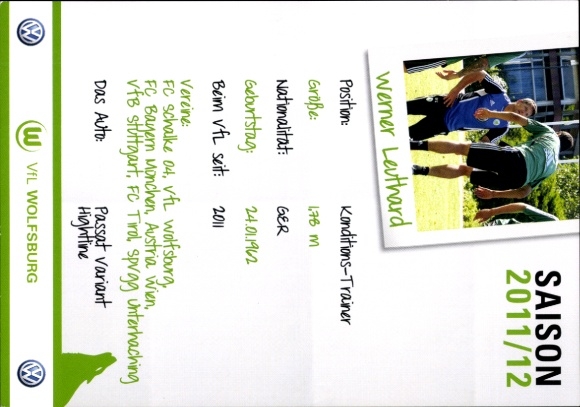 SAISON
2011/12
Werner Leuthard
Position: Konditions-Trainer
Größe: 1,78 m
Nationalität: GER
Geburtstag: 24.01.1962
Beim VfL seit: 2011
Vereine:
FC Schalke 04, VfL Wolfsburg,
FC Bayern München, Austria Wien,
VfB Stuttgart, FC Tirol, SpVgg Unterhaching
Das Auto: Passat Variant
Highline
VfL WOLFSBURG